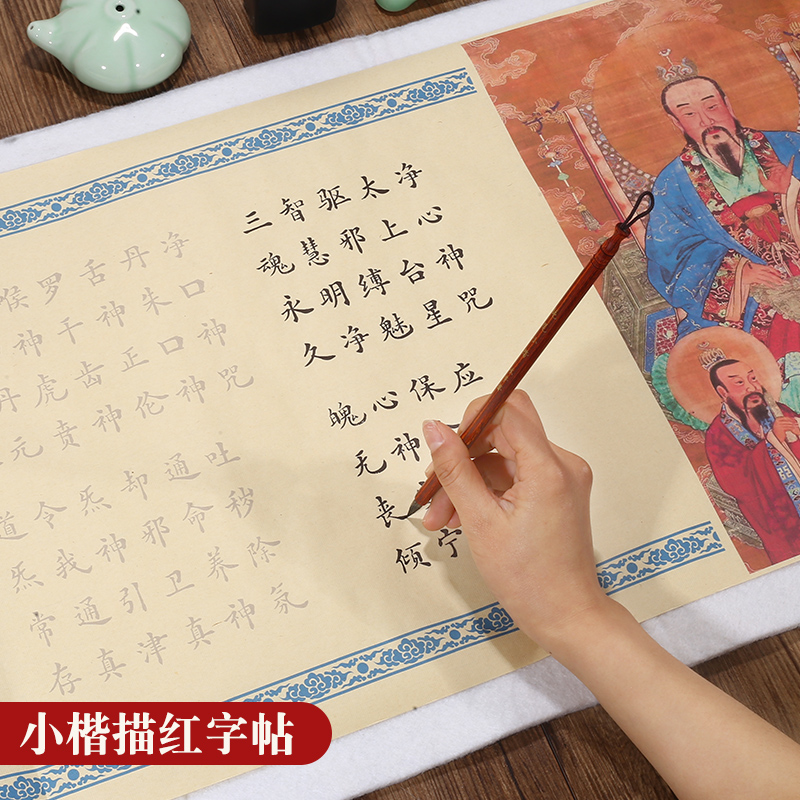 净心神咒
太上台星应
驱邪缚魅保
智慧明净心神宁
三魂永久魄无丧倾
净口神咒
丹朱口神吐秽除氛
舌神正伦通命养神
罗千齿神却邪卫真
喉神虎贲炁神引津
丹元令我通真
道炁常存
小楷描红字帖